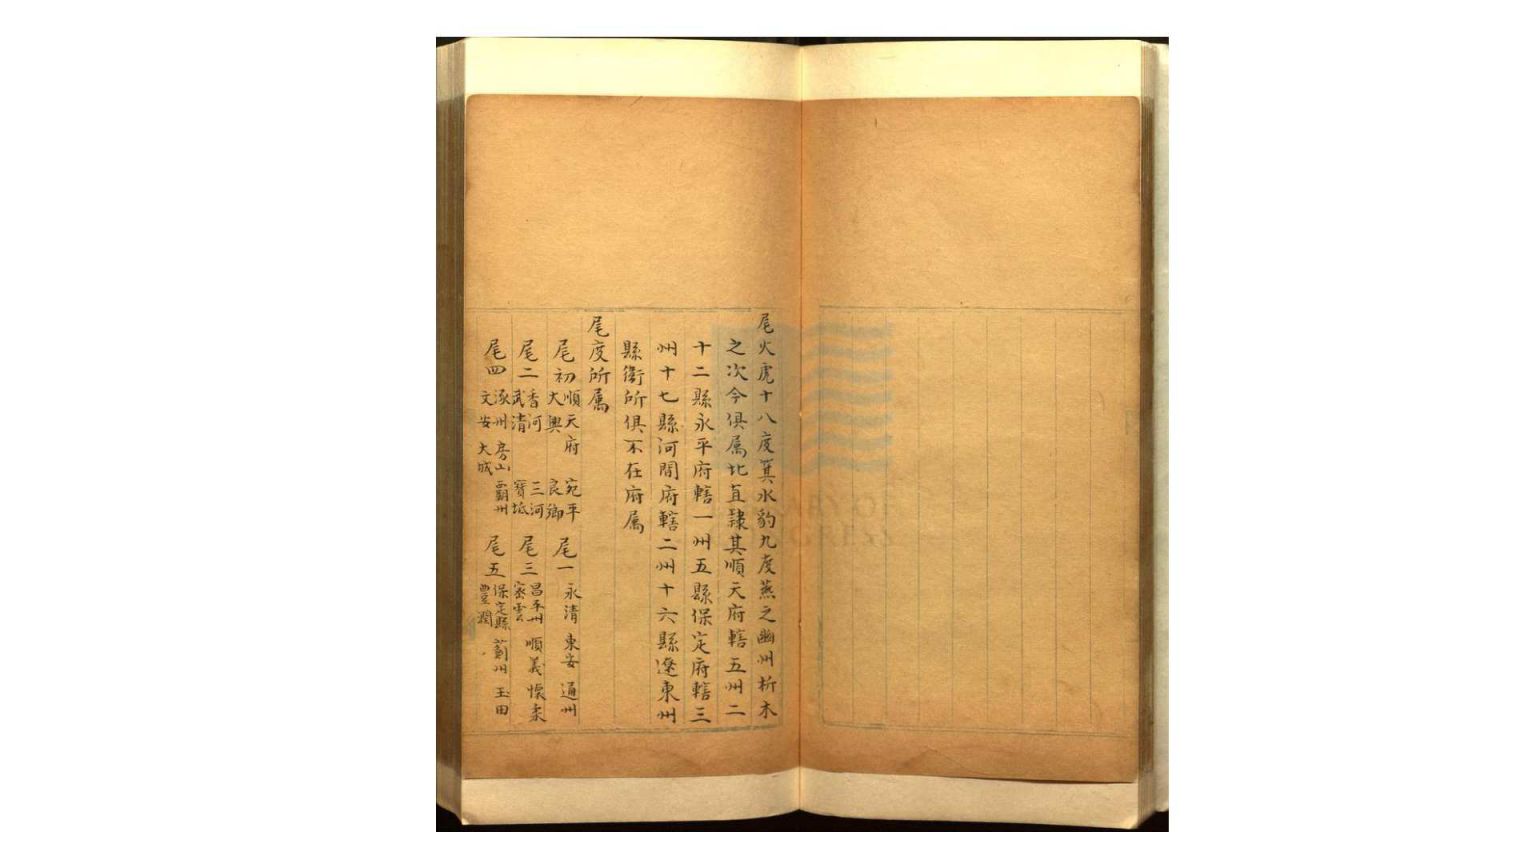 尾火虎十八度箕水豹九度燕之幽州析木
之次今俱属北直隸其順天府轄五州二
十二縣永平府轄一州五縣保定府轄三
州十七縣河間府轄二州十六縣遼東州
縣衛所俱不在府属
尾度所属
尾初 順天府 大興 宛平 良鄉 尾一 永清 東安 通州
尾二 香河 武清 三河 寶坻 尾三 昌平州 密雲 順義 懷柔
尾四 涿州 文安 房山 大城 霸州 尾五 保定縣 豐潤 薊州 玉田